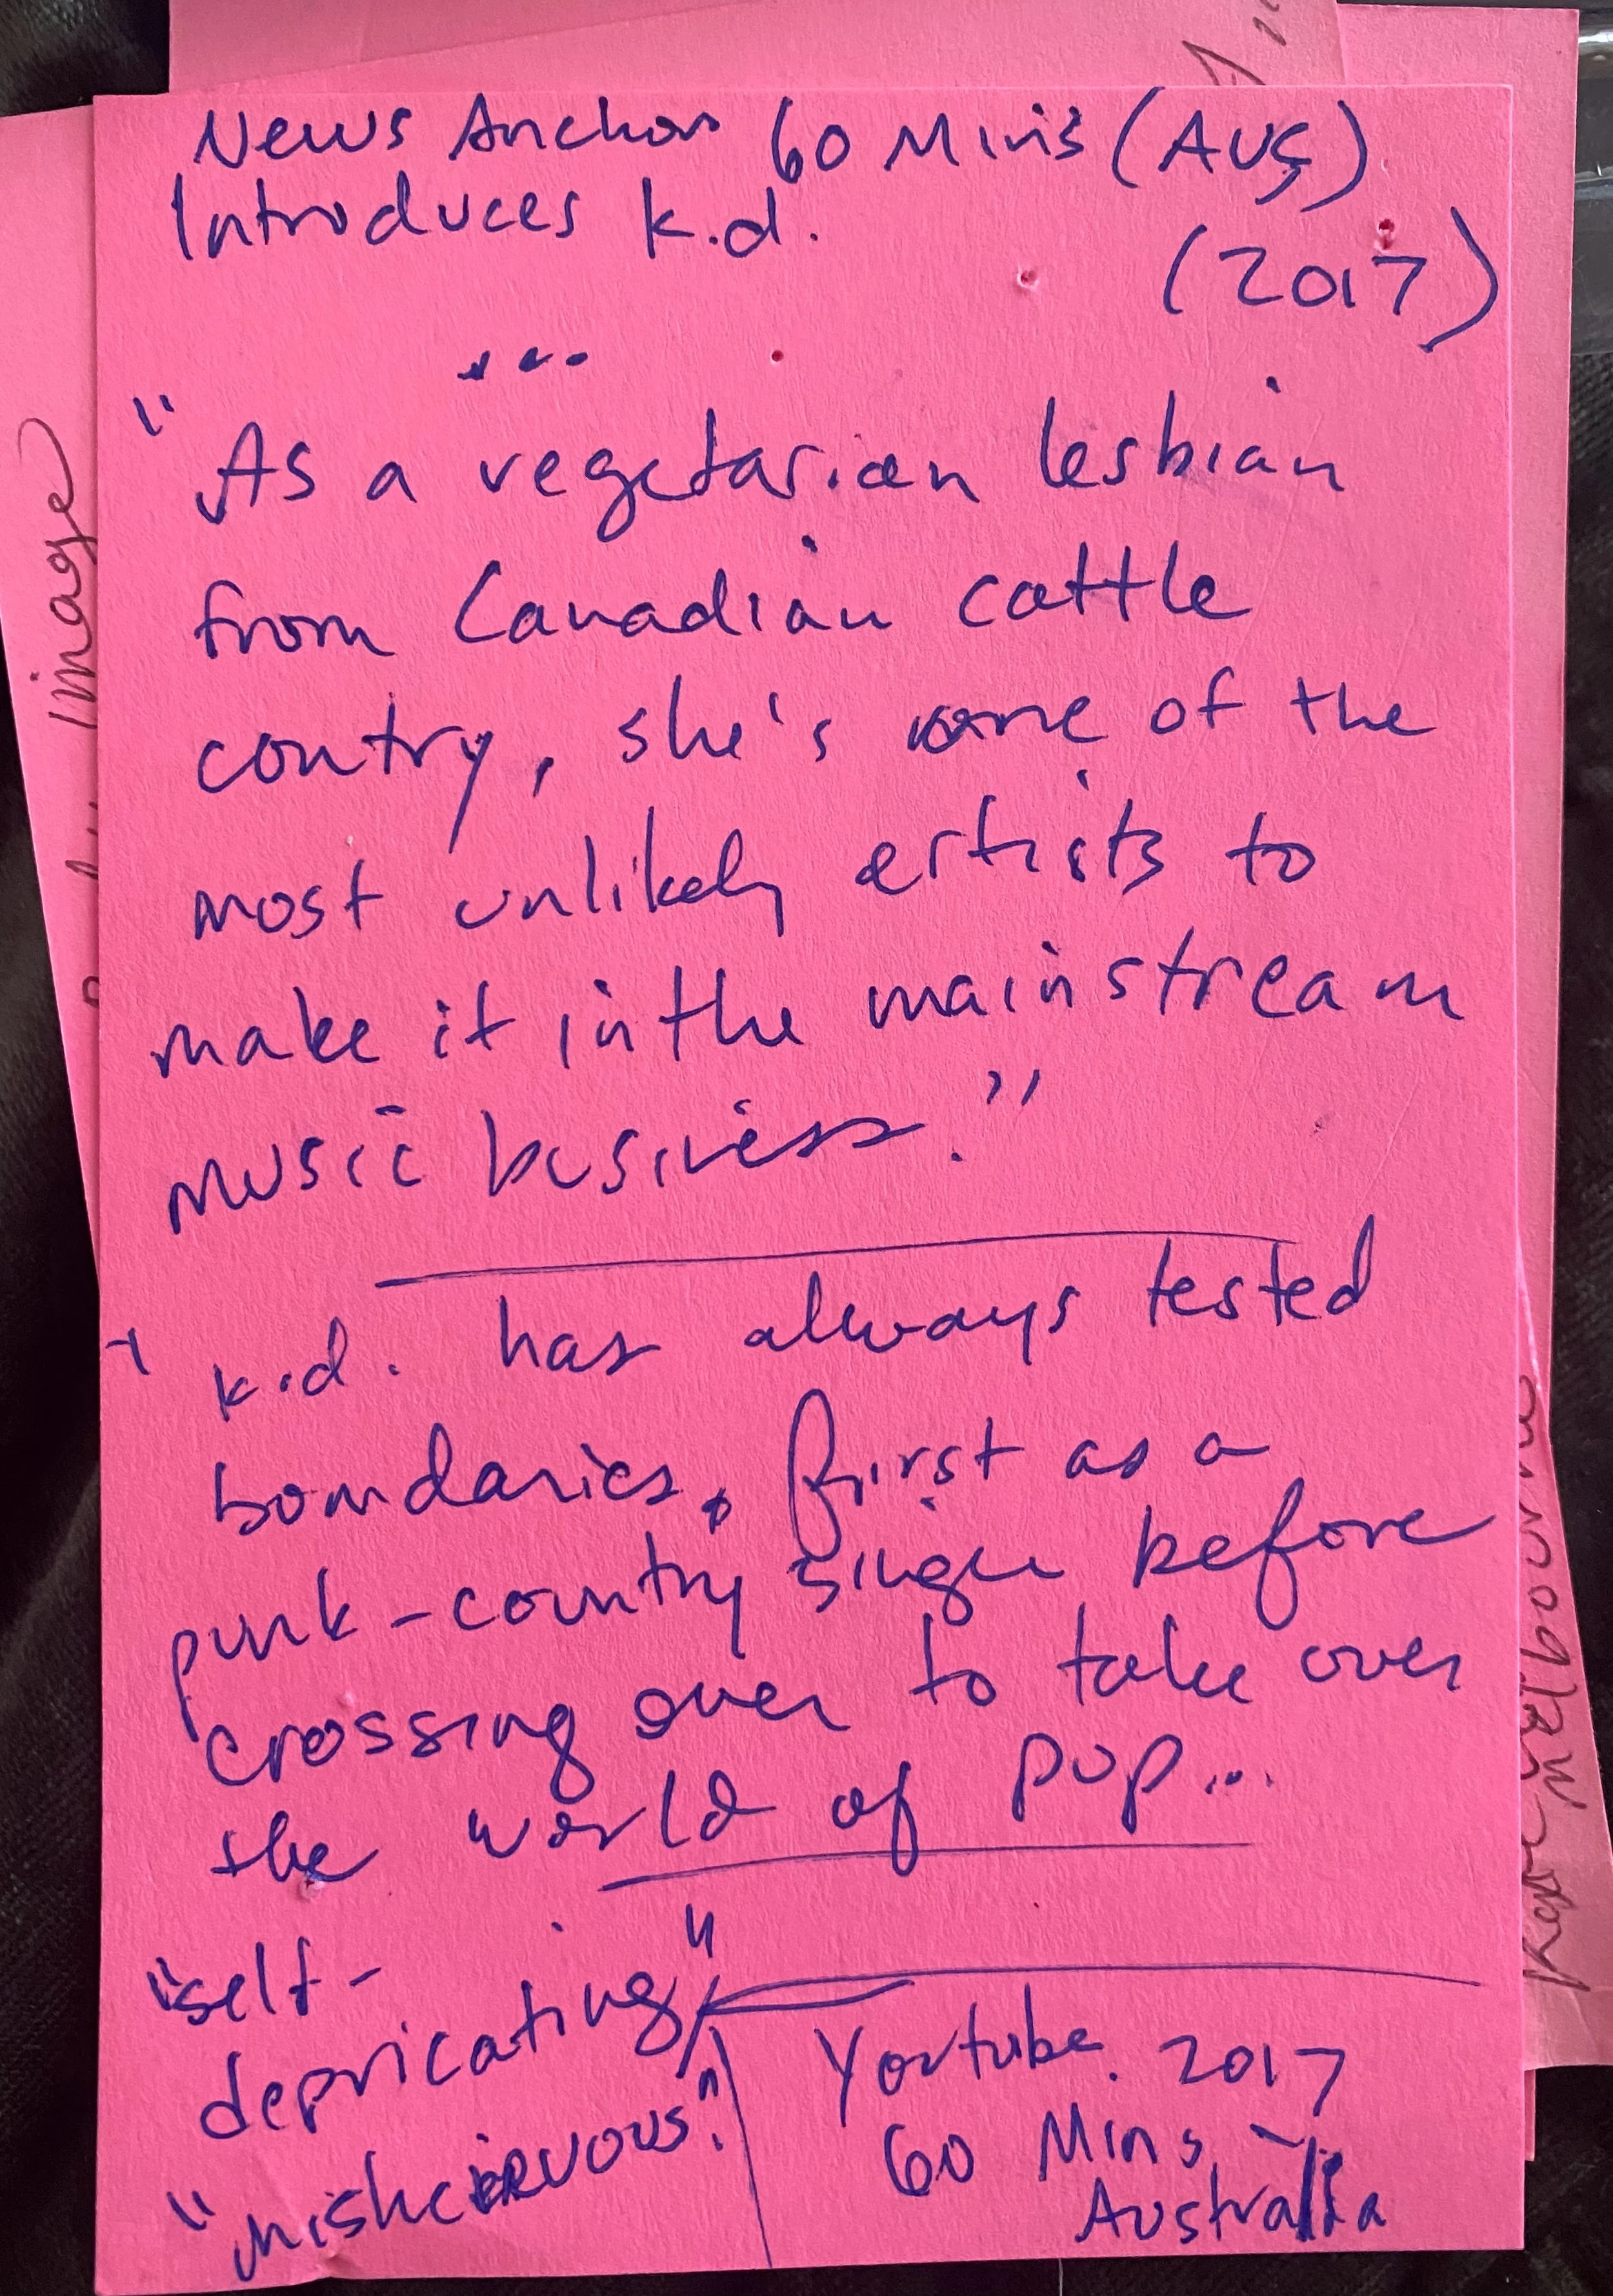 News Anchor 60 Mins (AUS)
Introduces k.d.
(2017)
...
"As a vegetarian lesbian
from Canadian cattle
contry, she's one of the
most unlikely artists to
make it in the mainstream
music business."
k.d. has always tested
boundaries, first as a
punk-country singer before
crossing over to take over
the world of pop...
"self-
depricating"
"mishcierVOUS."
Youtube. 2017
60 Mins
Australia
image
Melbourne